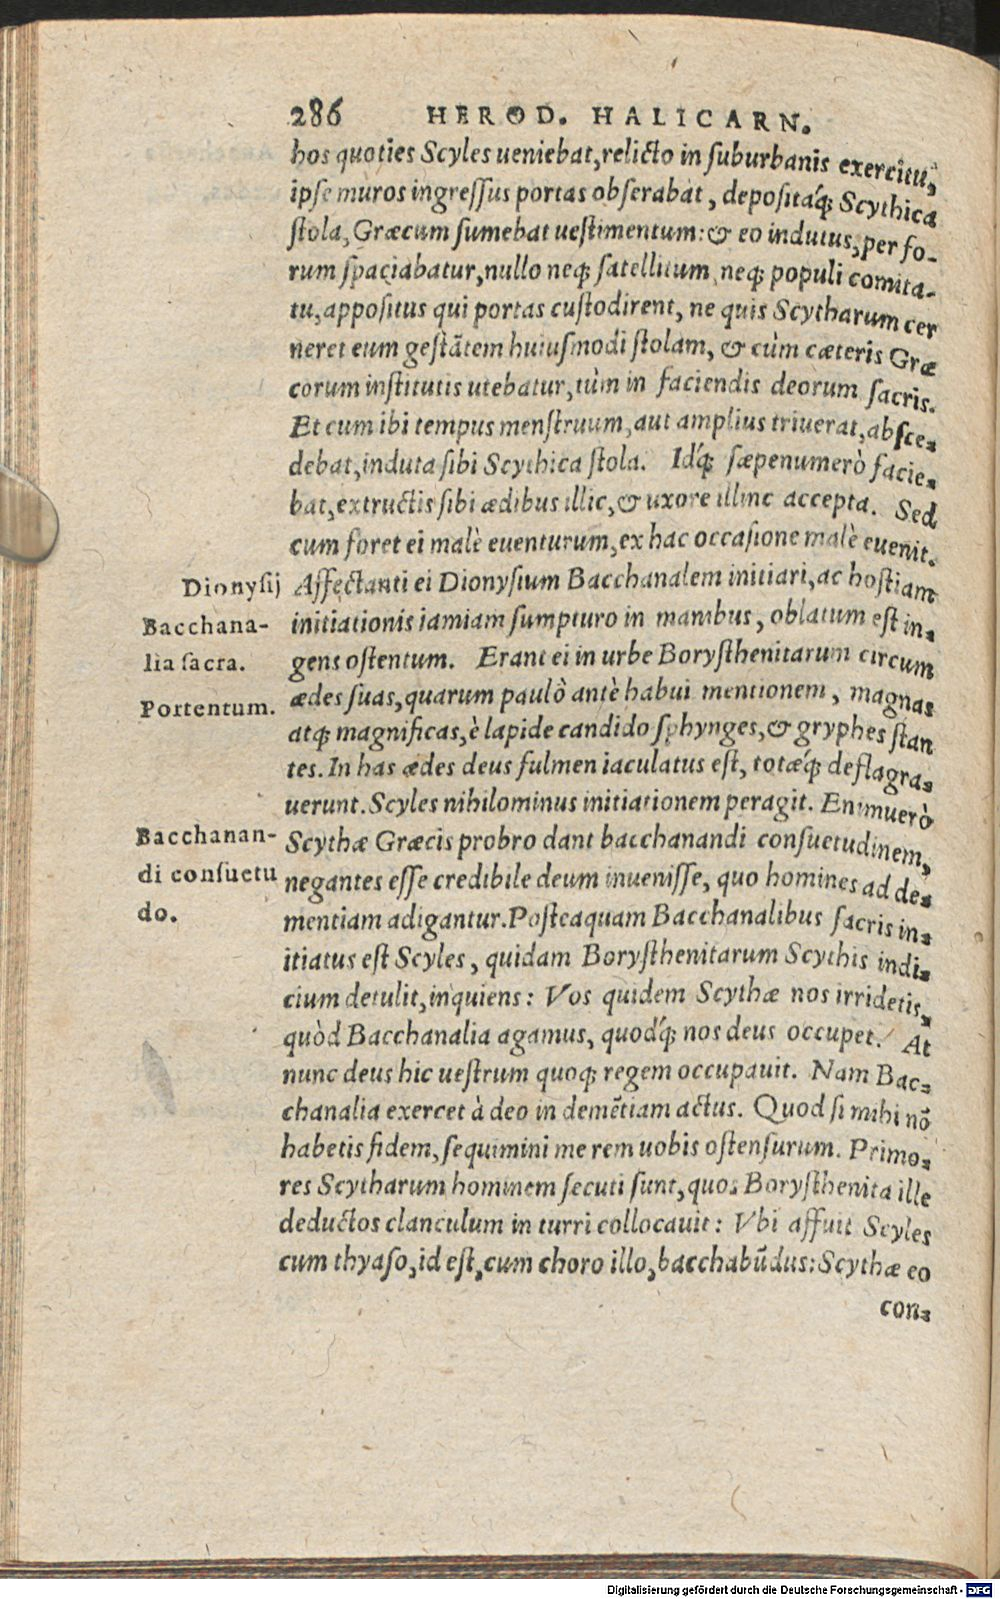 286 HEROD. HALICARN.
hos quoties Scyles ueniebat, relicto in suburbanis exercitu,
ipse muros ingressus portas obserabat, depositáq; Scythica
stola, Græcum sumebat uestimentum: & eo indutus, per fo-
rum spaciabatur, nullo neq; satellitum, neq; populi comita-
tu, appositus qui portas custodirent, ne quis Scytharum cer
neret eum gestātem huiusmodi stolam, & cùm cæteris Græ
corum institutis utebatur, tùm in faciendis deorum sacris.
Et cum ibi tempus menstruum, aut amplius triuerat, absce-
debat, induta sibi Scythica stola. Idq́; sæpenumerò facie-
bat, extructis sibi ædibus illic, & uxore illinc accepta. Sed
cum foret ei malè euenturum, ex hac occasione malè euenit.
Dionysij Affectanti ei Dionysium Bacchanalem initiari, ac hostiam
Bacchana- initiationis iamiam sumpturo in manibus, oblatum est in-
lia sacra. gens ostentum. Erant ei in urbe Borysthenitarum circum
Portentum. ædes suas, quarum paulò antè habui mentionem, magnas
atq; magnificas, è lapide candido sphynges, & gryphes stan
tes. In has ædes deus fulmen iaculatus est, totæq́; deflagra-
uerunt. Scyles nihilominus initiationem peragit. Enimuerò
Bacchanan- Scythæ Græcis probro dant bacchanandi consuetudinem,
di consuetu negantes esse credibile deum inuenisse, quo homines ad de-
do. mentiam adigantur. Posteaquam Bacchanalibus sacris in-
itiatus est Scyles, quidam Borysthenitarum Scythis indi-
cium detulit, inquiens: Vos quidem Scythæ nos irridetis,
quòd Bacchanalia agamus, quodq́; nos deus occupet. At
nunc deus hic uestrum quoq; regem occupauit. Nam Bac-
chanalia exercet à deo in demētiam actus. Quod si mihi nō
habetis fidem, sequimini me rem uobis ostensurum. Primo-
res Scytharum hominem secuti sunt, quos Borysthenita ille
deductos clanculum in turri collocauit: Vbi affuit Scyles
cum thyaso, id est, cum choro illo, bacchabūdus: Scythæ eo
con-
Digitalisierung gefördert durch die Deutsche Forschungsgemeinschaft - DFG